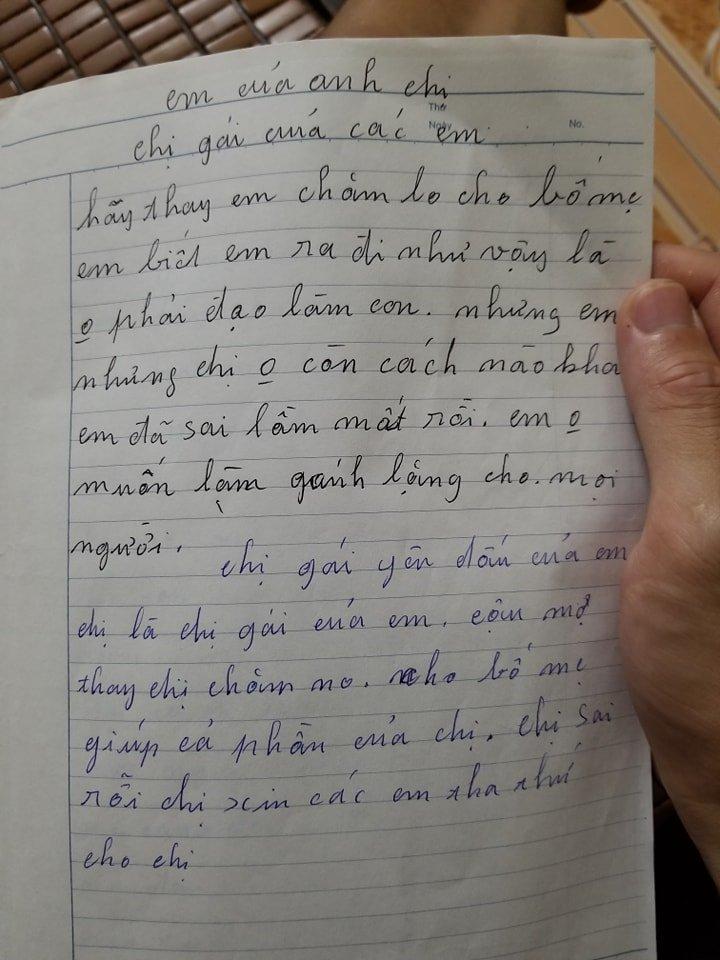 em củả anh chị
Thứ
Ngày
No.
chị gái củả các em
hãy thay em chăm lo cho bố mẹ
em biết em ra đi như vậy là
o phải đạo làm con. nhưng em
nhưng chị o còn cách nào kha
em đã sai lầm mất rồi. em o
muốn làm gánh lặng cho. mọi
người. chị gái yên dấu của em
chị là chị gái của em. cậu mợ
thay chị chăm no. cho bố mẹ
giúp cả phần của chị. chị sai
rồi chị xin các em tha thứ
cho chị